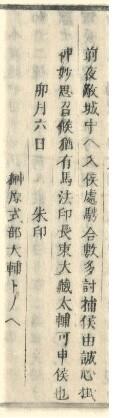 前夜敵城中ヘ入候處馳合數多討捕候由誠心扺
神妙思召候猶有馬法印長東大藏太輔可申候也
卯月六日　朱印
榊原式部大輔トノヘ